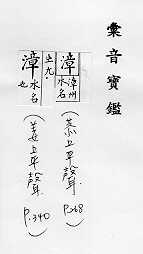 彙音寶鑑
漳
漳州
水名
(恭上平聲
P.268)
上九
漳
水名
也
(姜上平聲
P.340)